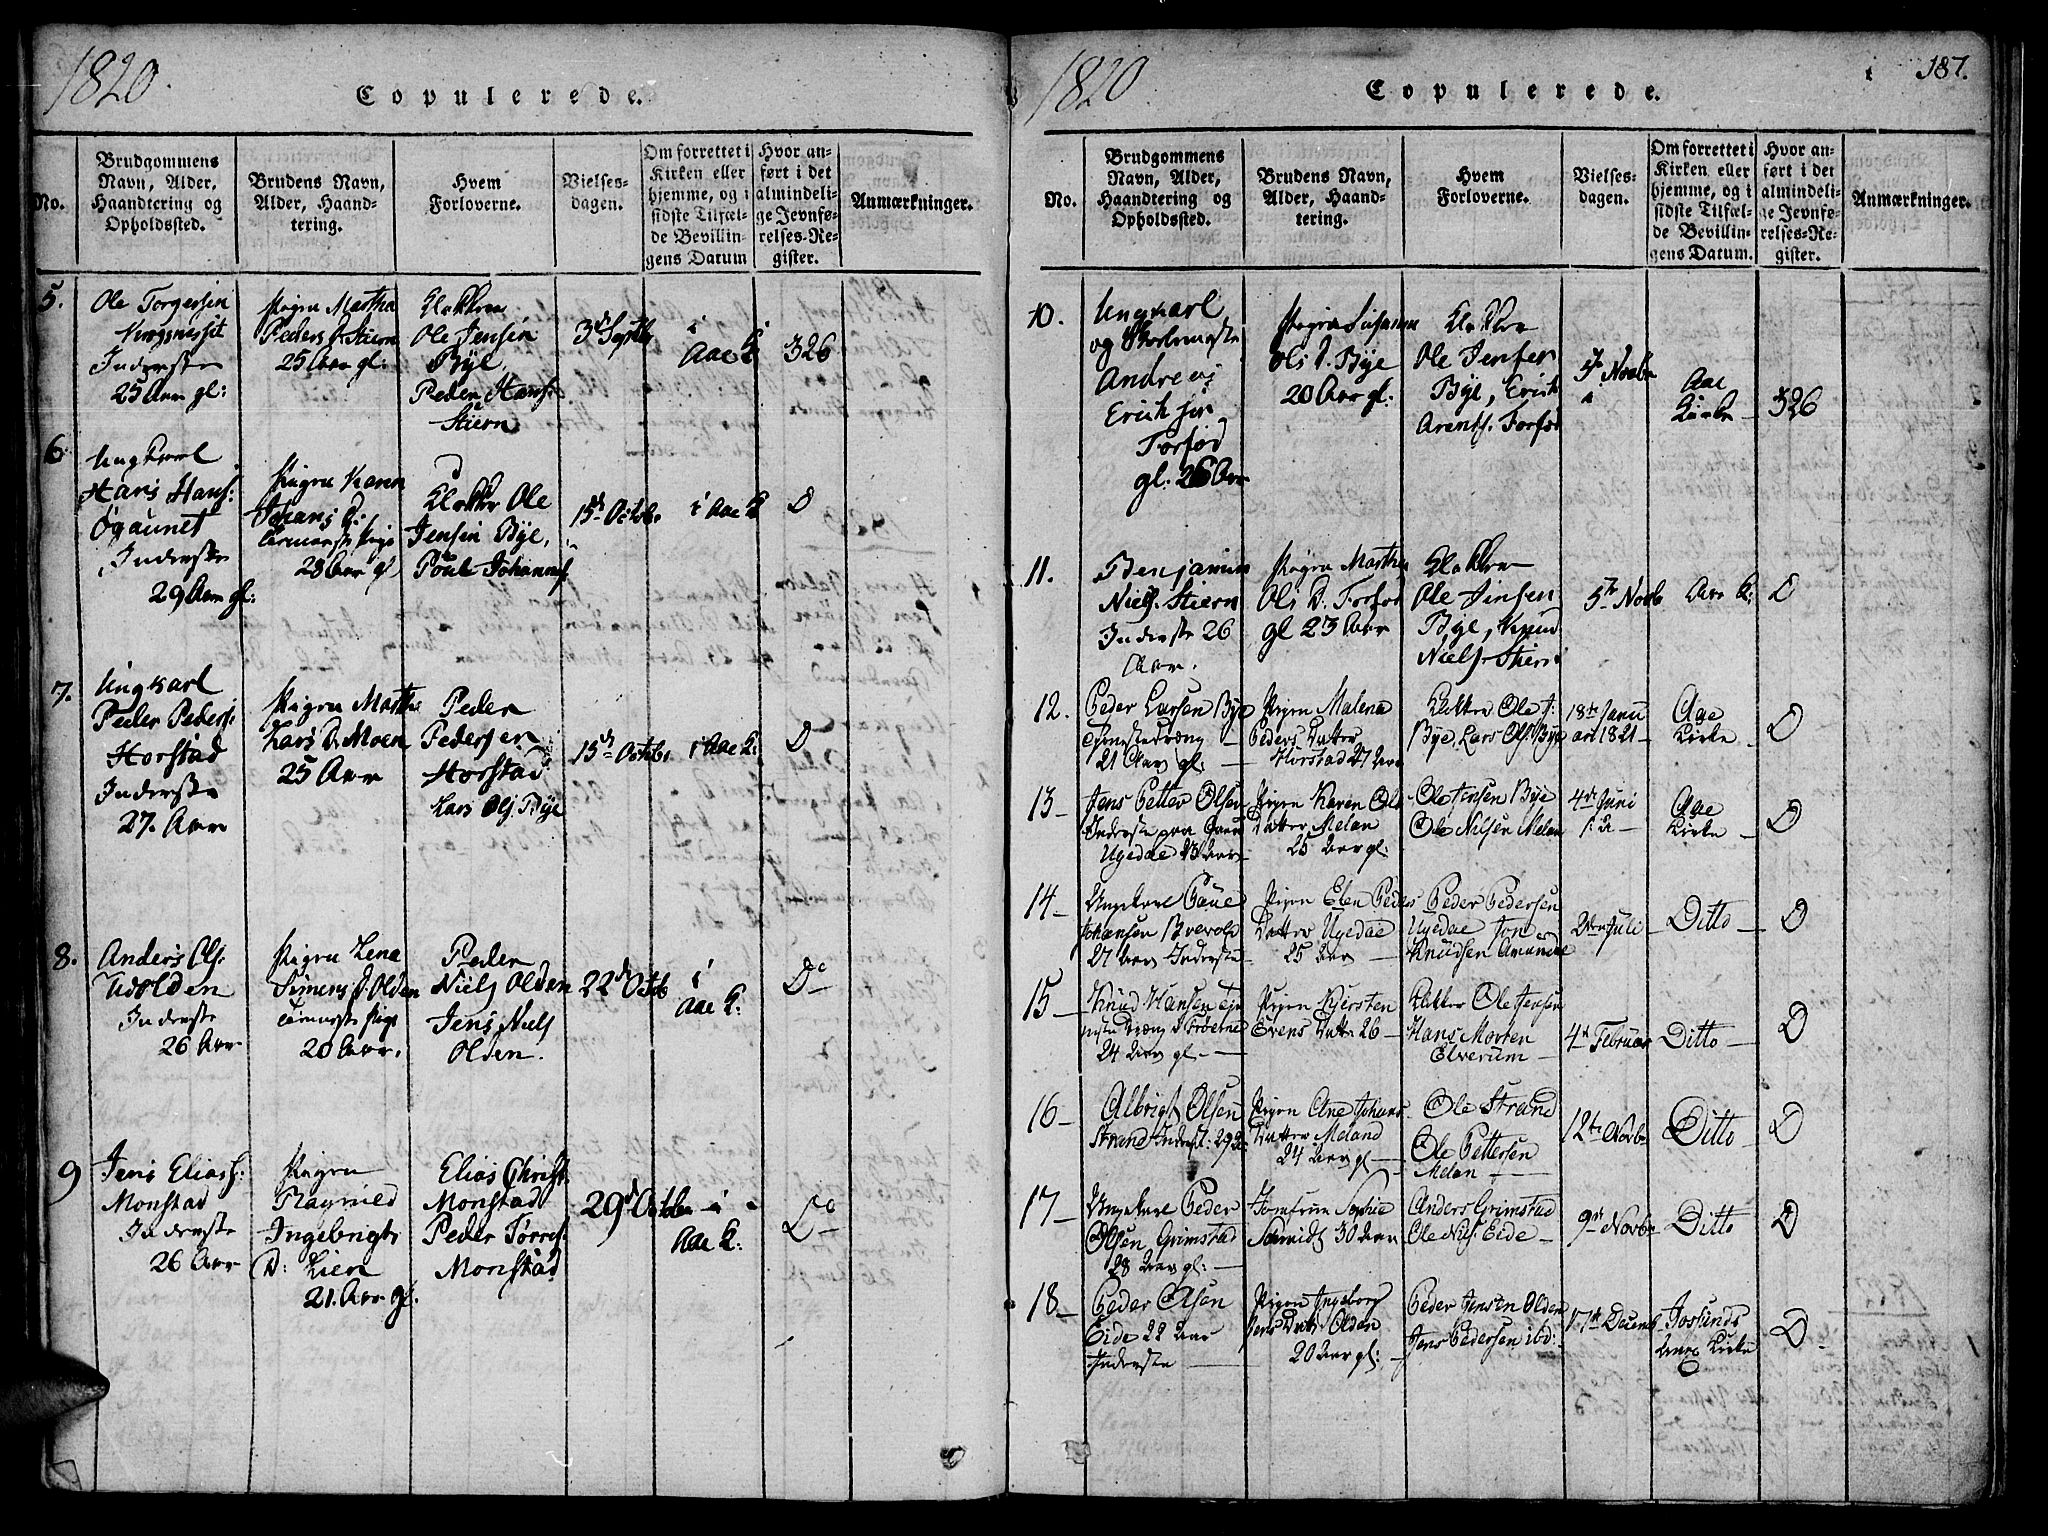 1820.
Copulerede.
No.
Brudgommens
Navn, Alder,
Haandtering og
Opholdssted.
Brudens Navn,
Alder, Haand-
tering.
Hvem
Forloverne.
Vielses-
dagen.
Om forrettet i
Kirken eller
hjemme, og i
sidste Tilfæl-
de Bevillin-
gens Datum
Hvor an-
ført i det
almindeli-
ge Jevnfø-
relses-Re-
gister.
Anmærkninger.
5.
Ole Torgersen
Inderste
25 Aar gl:
Pigen Martha
Peders D. Stiern
25 Aar gl:
Klokker
Ole Jensen
Bye,
Peder Hans:
Stiern
3d Septbr
i
Aae K
326
6
Ungkarl
Hans Hans:
Øgaunet
Inderste
29 Aar gl:
Pigen Karen
Johans D:
28 Aar gl
Klokker Ole
Jensen Bye,
Poul Johannes
15d Octbr.
i Aae K
D
7.
Ungkarl
Peder Peders:
Horstad
Inderste
27. Aar
Pigen Martha
Lars D. Moen
25 Aar
Peder
Pedersen
Horstad
Lars Ols. Bye
15d Octbr.
i Aae K:
D
8.
Anders Ols:
Uvolden
Inderste
26 Aar
Pigen Lena
Simens D. Olden
tienneste Pige
20 Aar.
Peder
Niels Olden
Jens Niels
Olden.
22d Octb
i
Aae K:
Do
9
Jens Elias:
Monstad
Inderste
26 Aar
Pigen
Ragnild
Ingebrigts
D: Lien
21. Aar gl.
Elias Christ:
Monstad
Peder Tørres:
Monstad
29d Octbr
i
Aae K:
Do
1820
Copulerede.
187.
No.
Brudgommens
Navn, Alder,
Haandtering og
Opholdssted.
Brudens Navn,
Alder, Haand-
tering.
Hvem
Forloverne.
Vielses-
dagen.
Om forrettet i
Kirken eller
hjemme, og i
sidste Tilfæl-
de Bevillin-
gens Datum.
Hvor an-
ført i det
almindeli-
ge Jevnfø-
relses-Re-
gister.
Anmærkninger.
10.
Ungkarl
og Skolemester
Andreas
Erichsen
Forfod
gl. 26 Aar
Pigen Susanna
Ols D. Bye
20 Aar gl:
Klokker
Ole Jensen
Bye, Erich
Arents. Forfod
5te Novbr
Aae
Kirke
326
11.
Benjamin
Niels. Stiern
Inderste 26
Aar.
Pigen Martha
Ols D. Forfod
gl 23 Aar
Klokker
Ole Jensen
Bye, Knud
Niels. Stiern
5te Novb
Aae K:
D
12.
Peder Larsen Bye
tjenstedreng
21 Aar gl:
Pigen Malena
Peders Datter
Horstad 27 Aar
Klokker Ole J:
Bye, Lars Ols. Bye
18te Janu
ari 1821
Aae
Kirke
D
13
Jens Petter Olsen
Inderste paa
Ugedae 23 Aar
Pigen Karen Ols
Datter Melan
25 Aar gl.
Ole Jensen Bye
Ole Nilsen Melan
4de Juni
Aae
Kirke
D
14
Ungkarl Paul
Johansen Brevold
27 Aar Inderste
Pigen Elen Peders
Datter Ugedae
25 Aar
Peder Pedersen
Ugedae Jon
Knudsen
2den Juli
Ditto
D
15
Knud Hansen tje
24 Aar gl.
Pigen Kjersten
Evens Datr 26
Klokker Ole Jensen
Hans Morten
Elverum
4d Februar
Ditto
D
16
Albrigt Olsen
Strand Inderst: 29 A:
Pigen Ane Johans
Datter Meland
24 Aar gl
Ole Strand
Ole Pettersen
Melan
12te Novbr
Ditto
D
17
Ungkarl Peder
Olsen Grimstad
28 Aar gl:
Jomfrue Sophia
Schmidt 30 Aar
Anders Grimstad
Ole Nils. Eide
9de Novbr
Ditto
D
18
Peder Olsen
Eide 22 Aar
Inderste
Pigen Ingeborg
Jens Datr Olden
20 Aar gl:
Peder Jensen Olden
Jens Pedersen ibd:
17de Decemb
Josunds
Anex Kirke
D